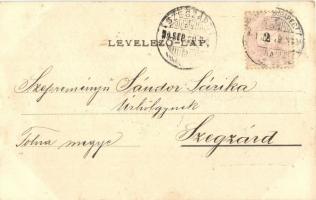 SZEGZÁRD
LEVELEZŐ-LAP.
Szepreményű Sándor Sárika
Úrhölgynek
Tolna megye Szegzárd